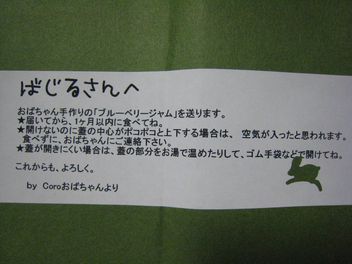 ばじるさんへ
おばちゃん手作りの「ブルーベリージャム」を送ります。
★届いてから、1ヶ月以内に食べてね。
★開けないのに蓋の中心がポコポコと上下する場合は、 空気が入ったと思われます。
食べずに、おばちゃんにご連絡下さい。
★蓋が開きにくい場合は、蓋の部分をお湯で温めたりして、ゴム手袋などで開けてね。
これからも、よろしく。
by Coroおばちゃんより